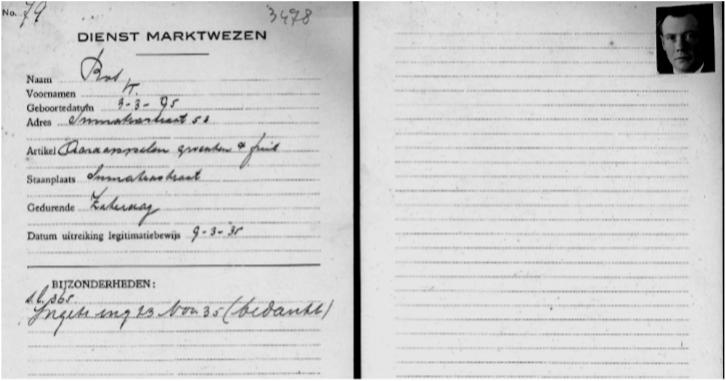 No. 79
3478
DIENST MARKTWEZEN
Naam Bos
Voornamen K.
Geboortedatum 3-3-95
Adres Sumatrastraat 53
Artikel Aardappelen groenten & fruit
Staanplaats Sumatrastraat
Gedurende Zaterdag
Datum uitreiking legitimatiebewijs 9-3-35
BIJZONDERHEDEN:
s.l. 365
Ingetr. ing 23 Nov 35 (bedankt)